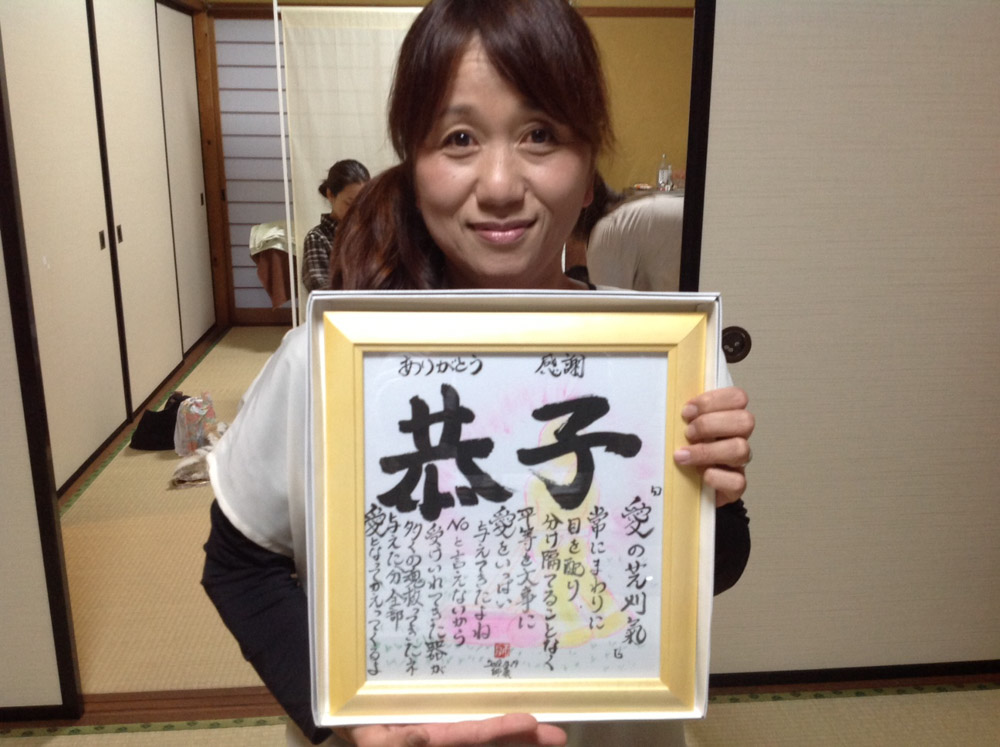 ありがとう 感謝
恭子
「愛の 刈氣」
常にまわりに
目を配り
分け隔てることなく
平等を大事に
愛をいっぱい
与えてきたよね
Noと言えないから
受けいれてきた器が
多くの魂救ってきたネ
与えた分全部
愛となってかえってくるよ